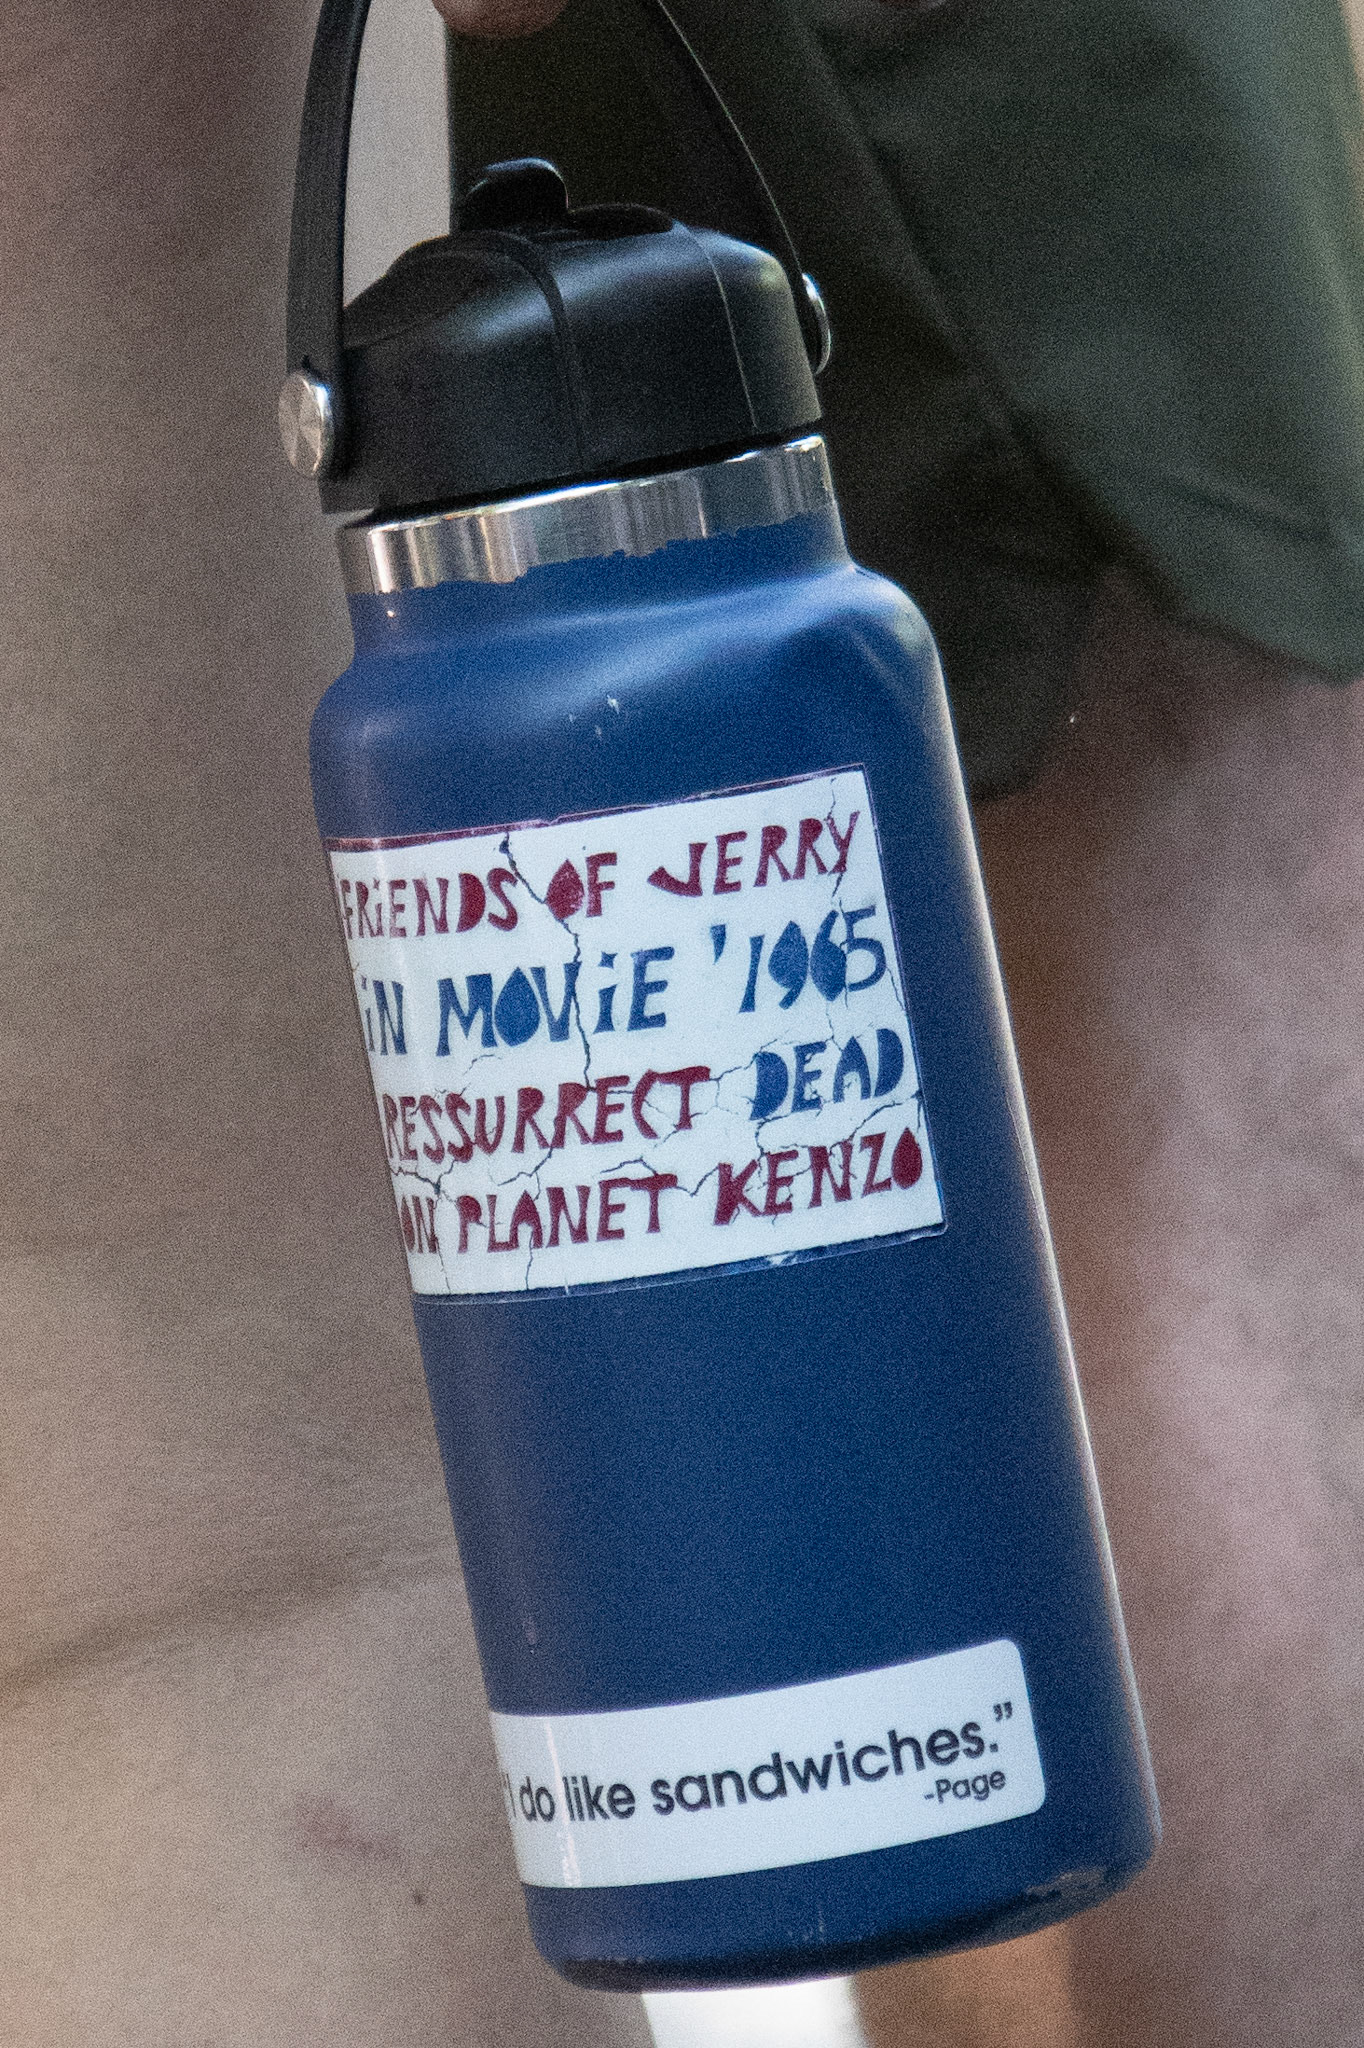 FRiENDS OF JERRY
iN MOViE '1965
RESSURRECT DEAD
ON PLANET KENZO
"I do like sandwiches."
-Page